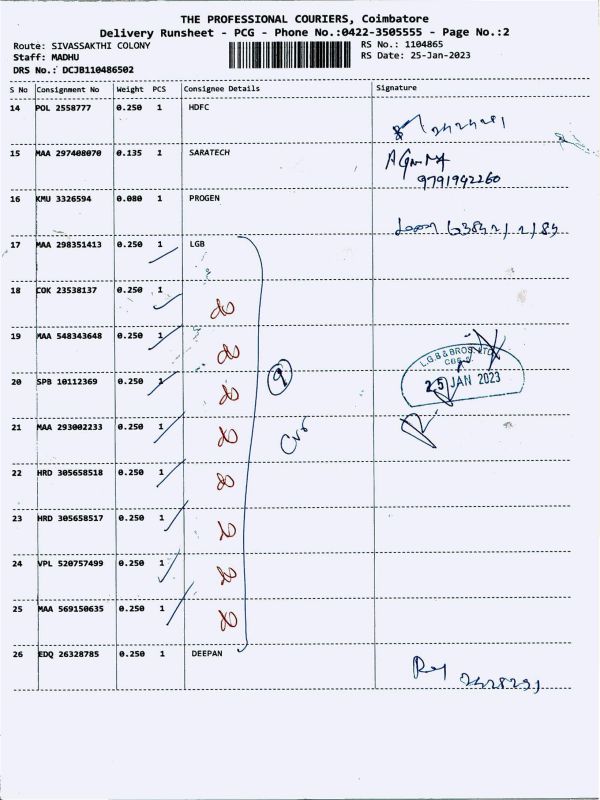 THE PROFESSIONAL COURIERS, Coimbatore
Delivery Runsheet - PCG - Phone No.:0422-3505555 - Page No.:2
Route: SIVASSAKTHI COLONY
Staff: MADHU
DRS No.: DCJB110486502
RS No.: 1104865
RS Date: 25-Jan-2023
S No Consignment No Weight PCS Consignee Details Signature
14 POL 2558777 0.250 1 HDFC
15 MAA 297408070 0.135 1 SARATECH
9791942260
16 KMU 3326594 0.080 1 PROGEN
17 MAA 298351413 0.250 1 LGB
18 COK 23538137 0.250 1 do
19 MAA 548343648 0.250 1 do
L.G.B & BROS. LTD
CBE-6
20 SPB 10112369 0.250 1 do 9 25 JAN 2023
21 MAA 293002233 0.250 1 do
22 HRD 305658518 0.250 1 do
23 HRD 305658517 0.250 1 do
24 VPL 520757499 0.250 1 do
25 MAA 569150635 0.250 1 do
26 EDQ 26328785 0.250 1 DEEPAN